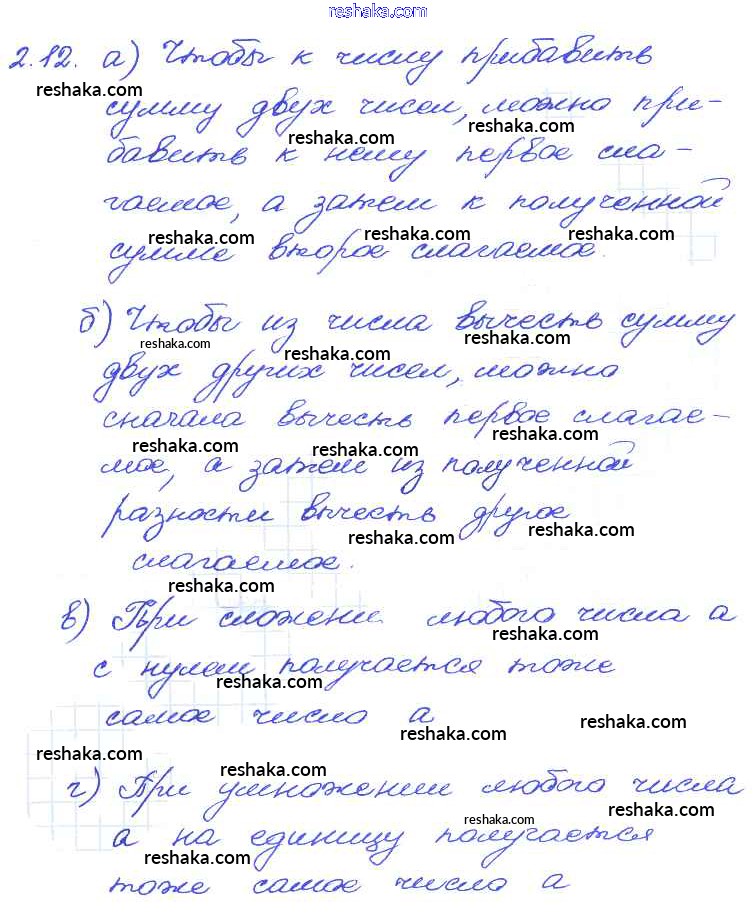 reshaka.com
2.12. а) Чтобы к числу прибавить
reshaka.com
сумму двух чисел, можно при-
reshaka.com reshaka.com
бавить к нему первое сла-
гаемое, а затем к полученной
reshaka.com reshaka.com reshaka.com
сумме второе слагаемое.
б) Чтобы из числа вычесть сумму
reshaka.com reshaka.com reshaka.com
двух других чисел, можно
сначала вычесть первое слагае-
reshaka.com reshaka.com reshaka.com
мое, а затем из полученной
разности вычесть другое
reshaka.com reshaka.com
слагаемое.
reshaka.com
в) При сложени любого числа а
reshaka.com
с нулем получается тоже
reshaka.com
самое число а
reshaka.com reshaka.com
reshaka.com reshaka.com
г) При умножении любого числа
reshaka.com reshaka.com
а на единицу получается
reshaka.com
тоже самое число а